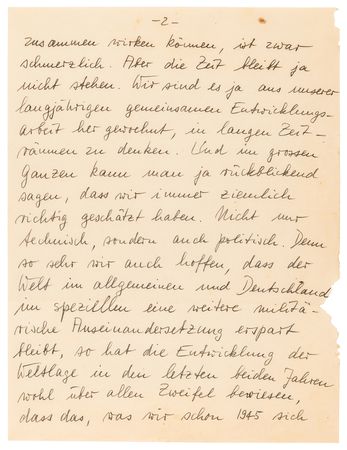 -2-
zusammen wirken können, ist zwar
schmerzlich. Aber die Zeit bleibt ja
nicht stehen. Wir sind es ja aus unserer
langjährigen gemeinsamen Entwicklungs-
arbeit her gewohnt, in langen Zeit-
räumen zu denken. Und im grossen
Ganzen kann man ja rückblickend
sagen, dass wir immer ziemlich
richtig geschätzt haben. Nicht nur
technisch, sondern auch politisch. Denn
so sehr wir auch hoffen, dass der
Welt im allgemeinen und Deutschland
im speziellen eine weitere militä-
rische Auseinandersetzung erspart
bleibt, so hat die Entwicklung der
Weltlage in den letzten beiden Jahren
wohl über allen Zweifel bewiesen,
dass das, was wir schon 1945 sich